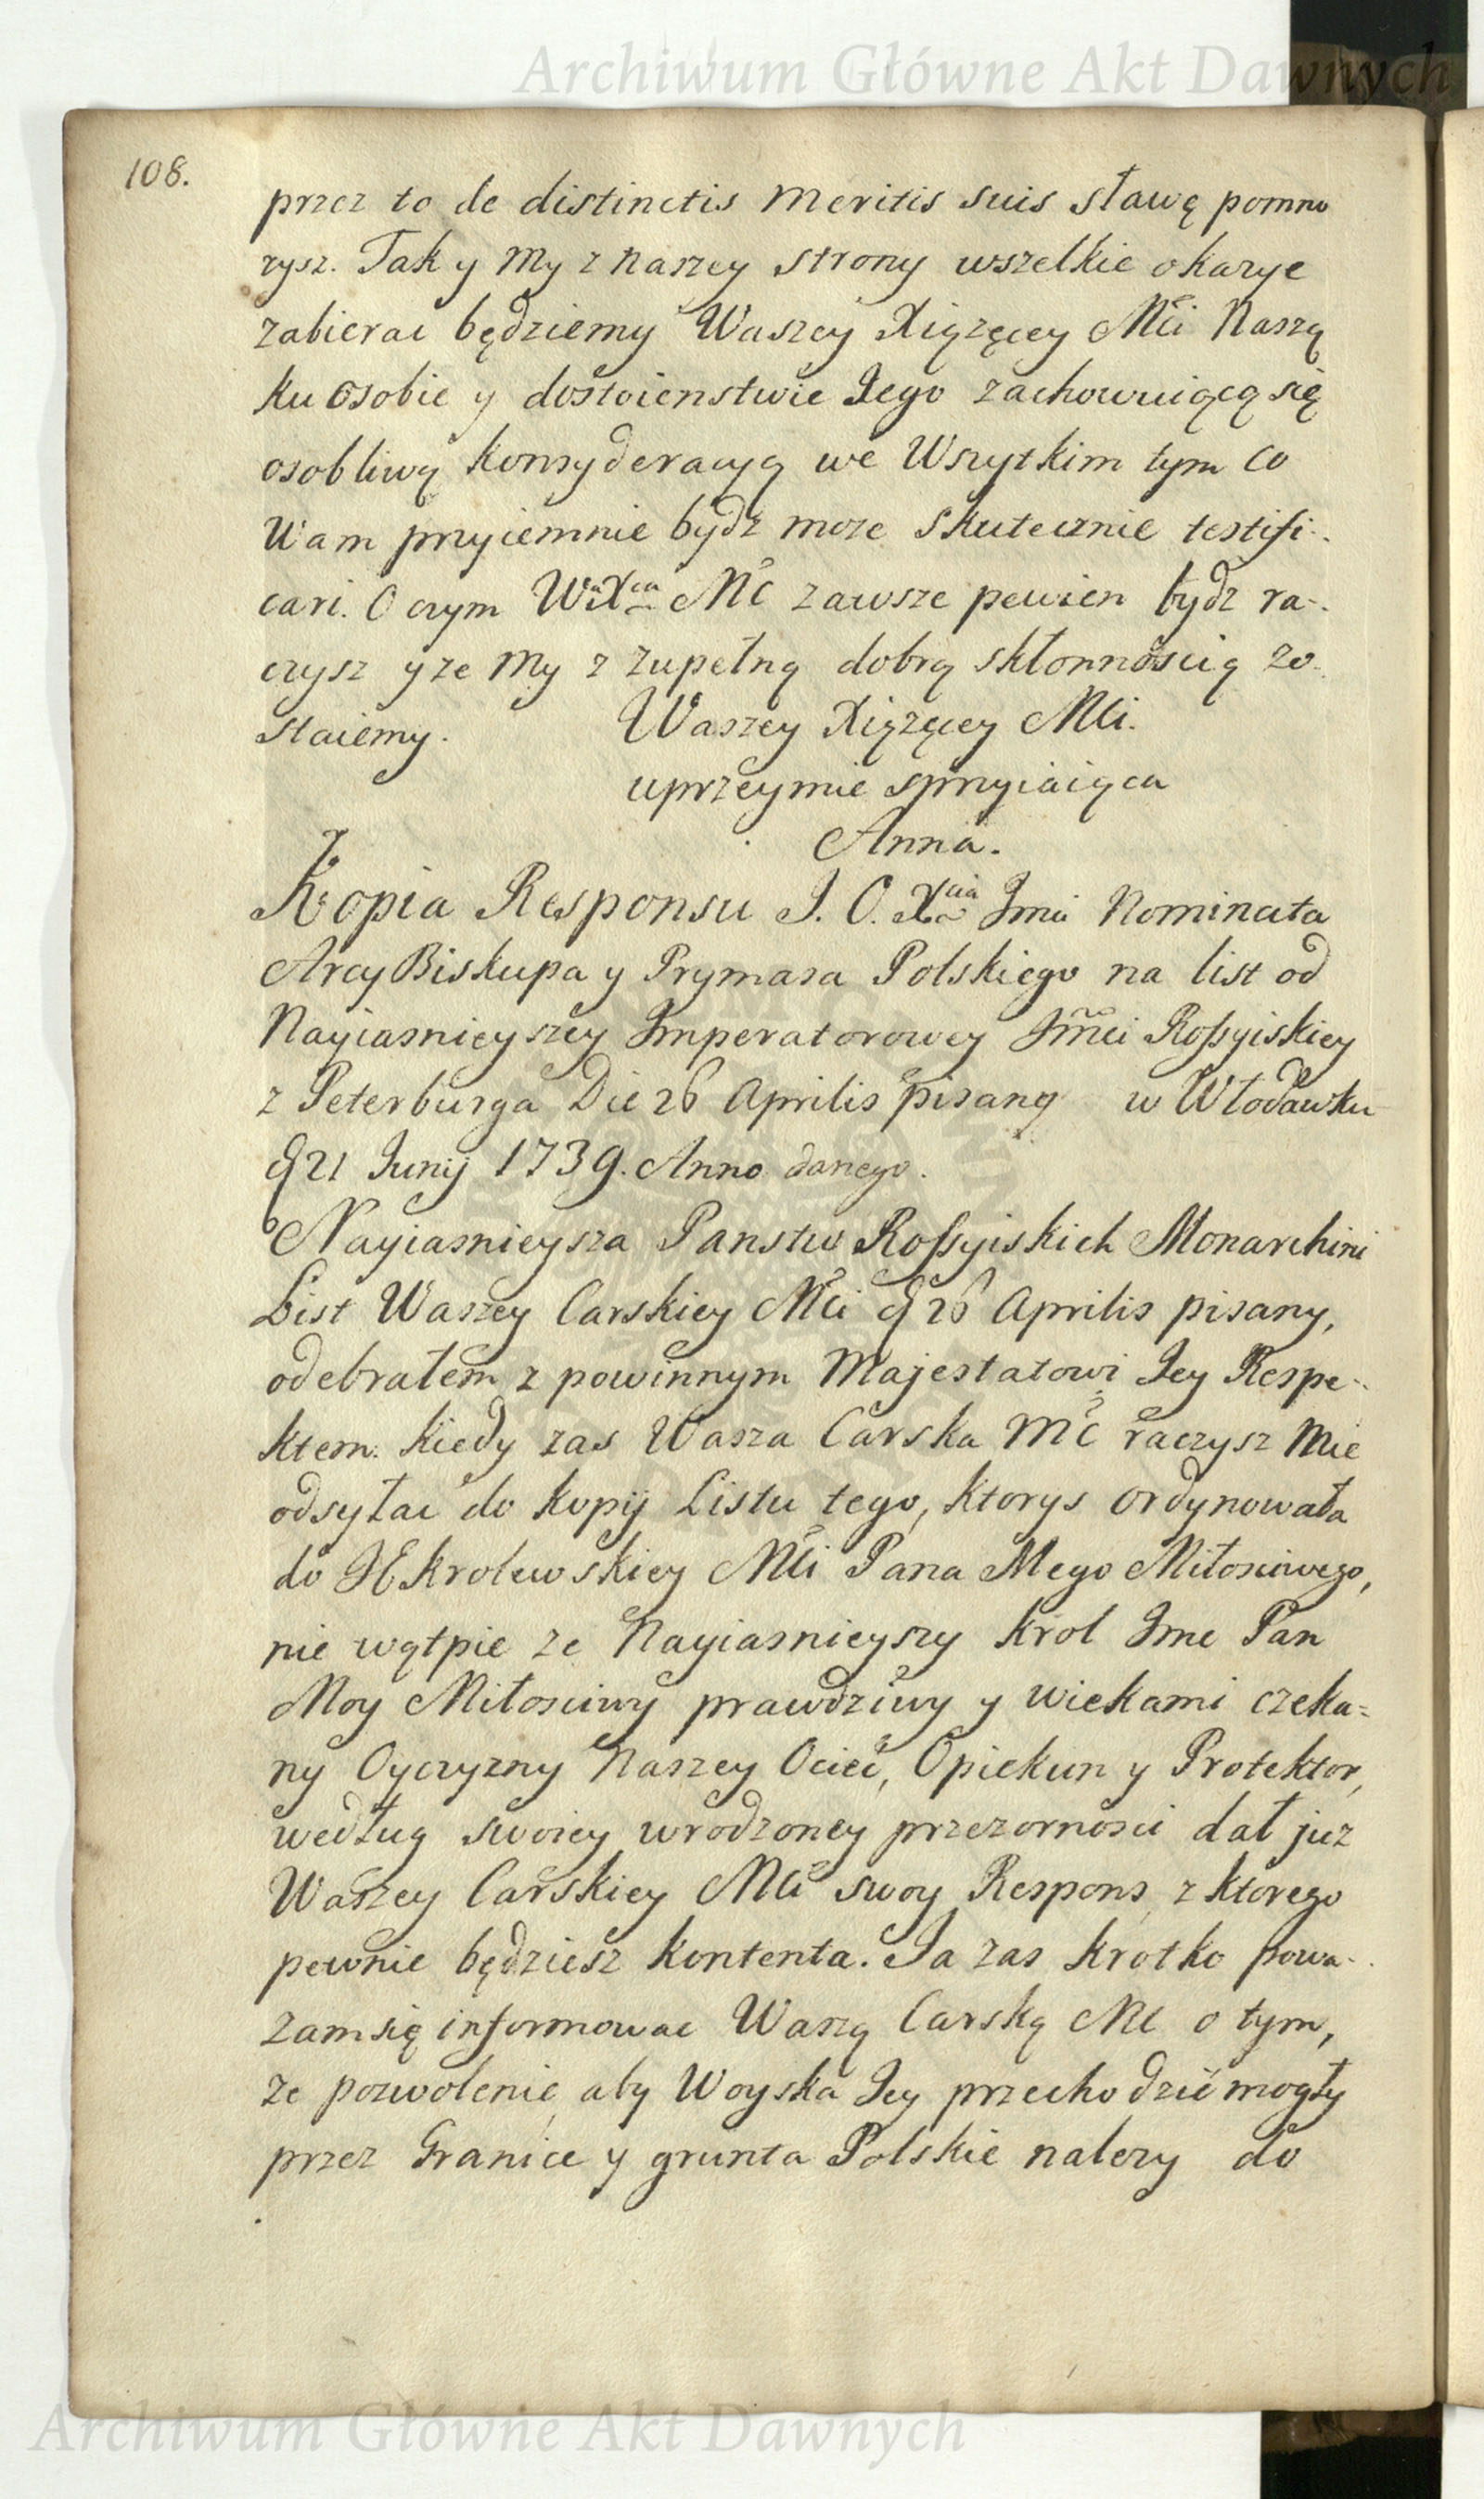 Archiwum Główne Akt Dawnych
108.
przez to de distinctis meritis suis sławę pomno
rysz. Tak y My z naszey strony wszelkie okazye
zabierac będziemy Waszey Xiązęcey Mci Naszą
ku osobie y dostoienstwie Jego zachowuiącą się
osobliwą konsyderacyą we Wszytkim tym co
Wam przyiemnie bydz moze skutecznie testifi-
cari. O czym WaXca Mc zawsze pewien bydz ra-
czysz y ze My z zupełną dobrą skłonnoscią zo
staiemy. Waszey Xiązęcey Mci.
uprzeymie sprzyiaiąca
Anna.
Kopia Responsu J. O. Xcia Jmci Nominata
Arcy Biskupa y Prymasa Polskiego na list od
Nayiasnieyszey Imperatorowey Jmci Rossyiskiey
z Peterburga Die 26 Aprilis pisany w Włodawku
d 21 Junij 1739. Anno danego.
Nayiasnieysza Panstw Rossyiskich Monarchini
List Waszey Carskiey Mci d 26 Aprilis pisany,
odebrałem z powinnym Majestatowi Jey Respe-
ktem. Kiedy zas Wasza Carska Mc raczysz mie
odsyłac do kopij Listu tego, ktorys ordynowała
do JKrolewskiey Mci Pana Mego Miłosciwego,
nie wątpie ze Nayiasnieyszy Krol Jmc Pan
Moy Miłosciwy prawdziwy y wiekami czeka=
ny Oyczyzny Naszey Ociec, Opiekun y Protektor,
według swoiey wrodzoney przezornosci dał juz
Waszey Carskiey Mci swoy Respons, z ktorego
pewnie będziesz kontenta. Ja zas krotko powa-
zam się informowac Waszą Carską Mc o tym,
ze pozwolenie, aby Woyska Jey przechodzić mogły
przez Granice y grunta Polskie nalezy do
Archiwum Główne Akt Dawnych